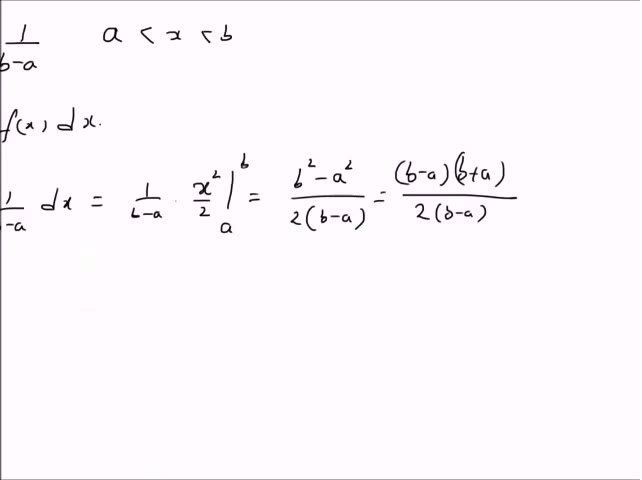 1/(b-a) a < x < b
f(x) dx.
1/(b-a) dx = 1/(b-a) · x²/2 |_a^b = (b² - a²)/(2(b-a)) = ((b-a)(b+a))/(2(b-a))